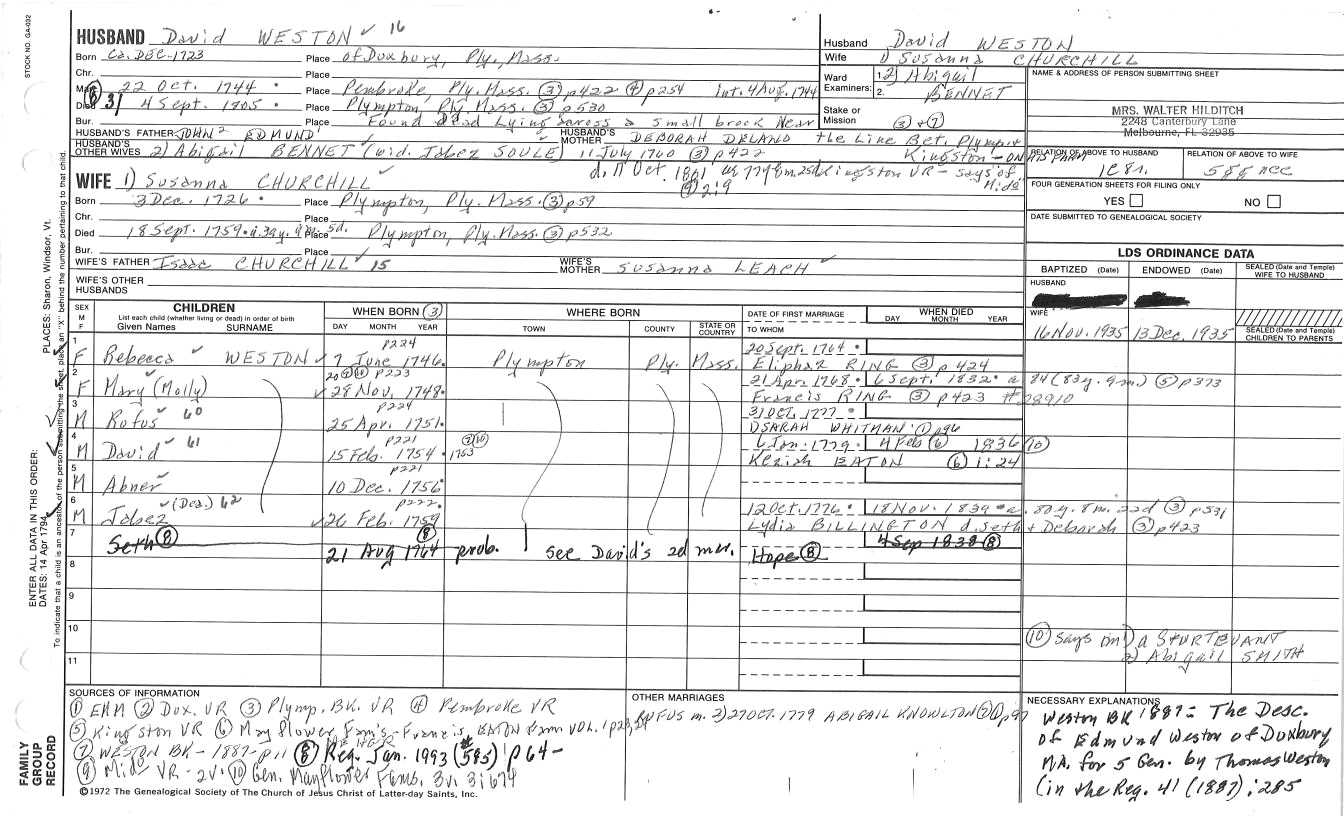 STOCK NO. GA-032
HUSBAND David WESTON ✓ 16
Born Ca. Dec-1723 Place of Duxbury, Ply. Mass.
Chr. Place
22 Oct. 1744 Place Pembroke, Ply. Mass. (3) p422 (4) p254 int. 4 Aug. 1744
Died 4 Sept. 1805 Place Plympton, Ply. Mass. (3) p530
Bur. Place Found dead Lying across a small brook Near
HUSBAND'S FATHER JOHN 2 EDMUND 1 HUSBAND'S MOTHER DEBORAH DELANO the Line Bet. Plympton
HUSBAND'S OTHER WIVES 2) Abigail BENNET (wid. Jabez SOULE) 11 July 1760 (3) p422 Kingston - ON HIS FARM
d. 11 Oct. 1801 Kingston VR - says of Mid.
(9) 219
WIFE 1) Susanna CHURCHILL ✓
Born 3 Dec. 1726 Place Plympton, Ply. Mass. (3) p59
Chr. Place
Died 18 Sept. 1759 Place Plympton, Ply. Mass. (3) p532
Bur. Place
WIFE'S FATHER Isaac CHURCHILL ✓ 15 WIFE'S MOTHER Susanna LEACH ✓
WIFE'S OTHER HUSBANDS
Husband David WESTON
Wife 1) Susanna CHURCHILL
Ward Examiners: 1. 2) Abigail
2. BENNET
Stake or Mission (3) + (7)
NAME & ADDRESS OF PERSON SUBMITTING SHEET
MRS. WALTER HILDITCH
2248 Canterbury Lane
Melbourne, FL 32935
RELATION OF ABOVE TO HUSBAND RELATION OF ABOVE TO WIFE
FOUR GENERATION SHEETS FOR FILING ONLY
YES NO
DATE SUBMITTED TO GENEALOGICAL SOCIETY
LDS ORDINANCE DATA
BAPTIZED (Date) ENDOWED (Date) SEALED (Date and Temple) WIFE TO HUSBAND
HUSBAND
WIFE
16 Nov. 1935 13 Dec. 1935 SEALED (Date and Temple) CHILDREN TO PARENTS
SEX M F CHILDREN WHEN BORN (3) WHERE BORN DATE OF FIRST MARRIAGE WHEN DIED
List each child (whether living or dead) in order of birth
Given Names SURNAME DAY MONTH YEAR TOWN COUNTY STATE OR COUNTRY TO WHOM DAY MONTH YEAR
1 F Rebecca ✓ WESTON ✓ 7 June 1746 p224 Plympton Ply. Mass. 20 Sept. 1764
Eliphaz RING (3) p 424
2 F Mary (Molly) ✓ 28 Nov. 1748 p223 21 Apr 1768 6 Sept. 1832 a 84 (83y. 9m.) (5) p373
Francis RING (3) p423 #28910
3 M Rufus ✓ 60 25 Apr. 1751 p224 31 Oct. 1777
1) SARAH WHITMAN (1) p96
4 M David ✓ 61 15 Feb. 1754 p221 (7)(10) 1753 6 Jan. 1779 4 Feb (6) 1836 (10)
Keziah EATON (6) 1:24
5 M Abner ✓ 10 Dec. 1756 p221
6 M Jabez ✓ (Dea.) 62 26 Feb. 1759 p222 12 Oct. 1776 18 Nov. 1839 a. 80y. 8m. 22d (3) p531
Lydia BILLINGTON d. Seth + Deborah (3) p423
7 Seth (8) 21 Aug 1764 (8) prob. see David's 2d mar. Hope (8) 4 Sep 1838 (8)
8
9
10 (10) Says m 1) a STURTEVANT
2) Abigail SMITH
11
SOURCES OF INFORMATION
(1) EHM (2) Dux. VR (3) Plymp. BK. VR (4) Pembroke VR
(5) Kingston VR (6) Mayflower Fam's - Francis EATON Fam VOL. 1 p23, 24
(7) WESTON BK - 1887 - p11 (8) NEHGR Reg. Jan. 1993 (#585) p64-
(9) Mid VR - 2V. (10) Gen. Mayflower Fams, 3v. 3:674
OTHER MARRIAGES
RUFUS m. 2) 27 OCT. 1779 ABIGAIL KNOWLTON (7)(1) p97
NECESSARY EXPLANATIONS
Weston BK 1887 = The Desc.
of Edmund Weston of Duxbury
MA. for 5 Gen. by Thomas Weston
(in the Reg. 41 (1887) : 285
©1972 The Genealogical Society of The Church of Jesus Christ of Latter-day Saints, Inc.
FAMILY GROUP RECORD
ENTER ALL DATA IN THIS ORDER:
DATES: 14 Apr 1794 PLACES: Sharon, Windsor, Vt.
To indicate that a child is an ancestor of the person submitting the sheet, place an "X" behind the number pertaining to that child.